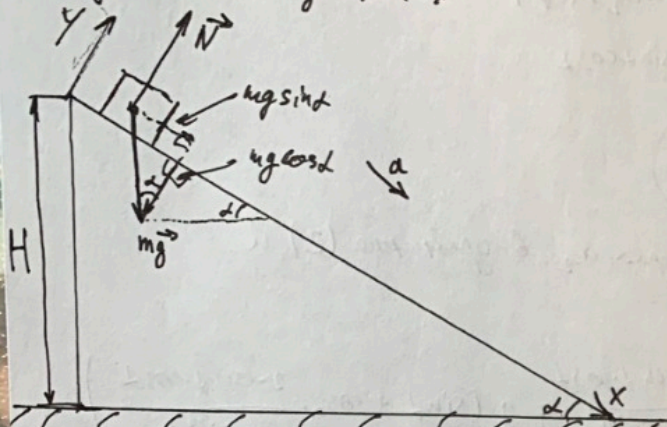 Y
N⃗
mg sinα
mg cosα
a⃗
α
α
mg⃗
H
α
X